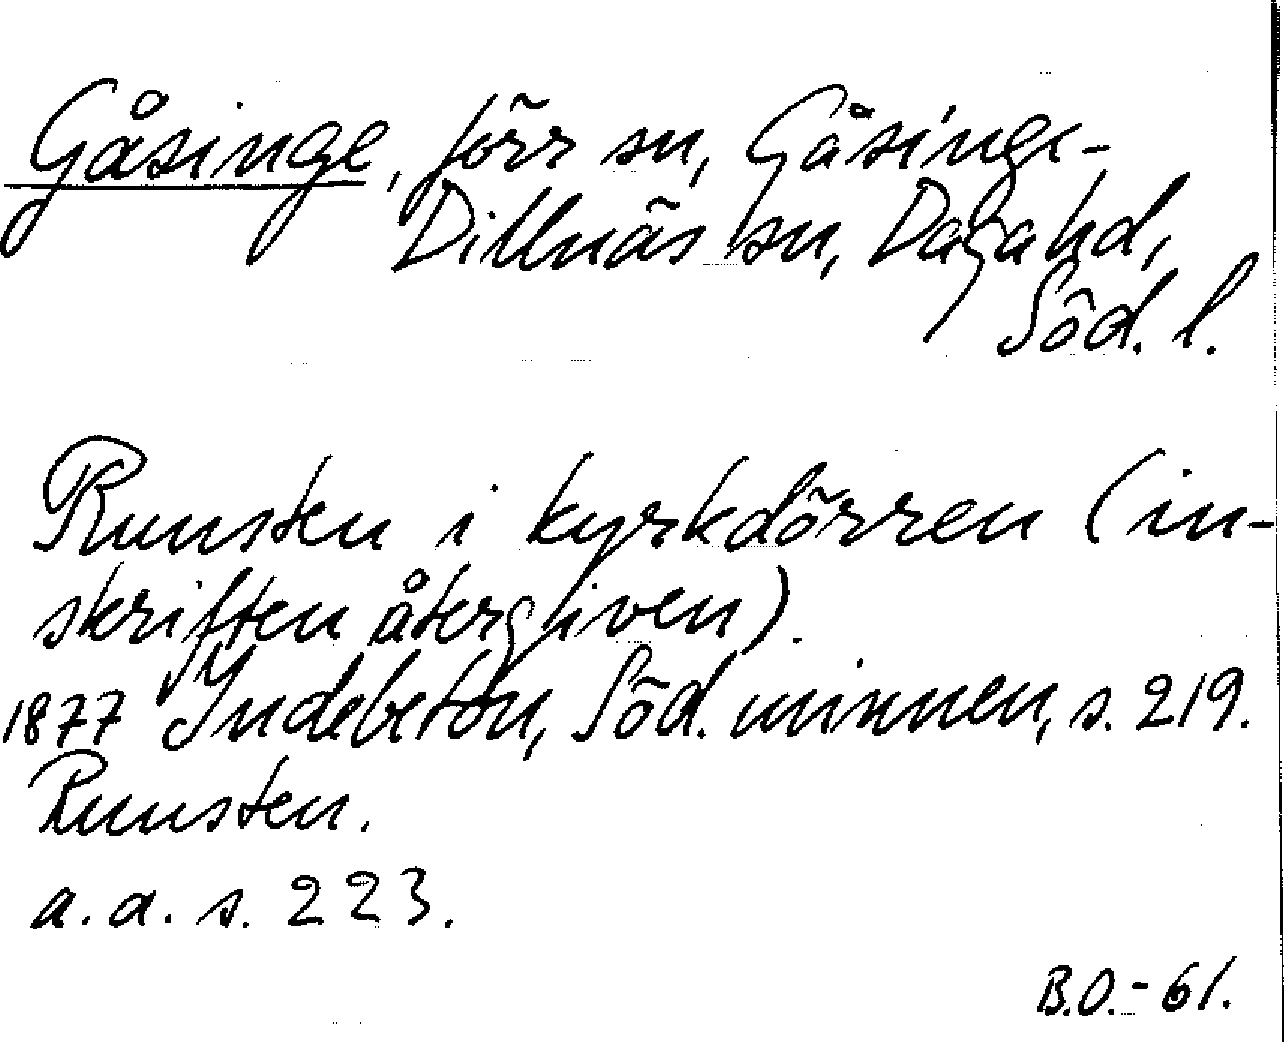 Gåsinge, förr sn, Gåsinge-
Dillnäs sn, Daga hd,
Söd. l.
Runsten i kyrkdörren (in-
skriften återgiven).
1877 Indebetou, Söd. minnen, s. 219.
Runsten.
a. a. s. 223.
B.O.-61.